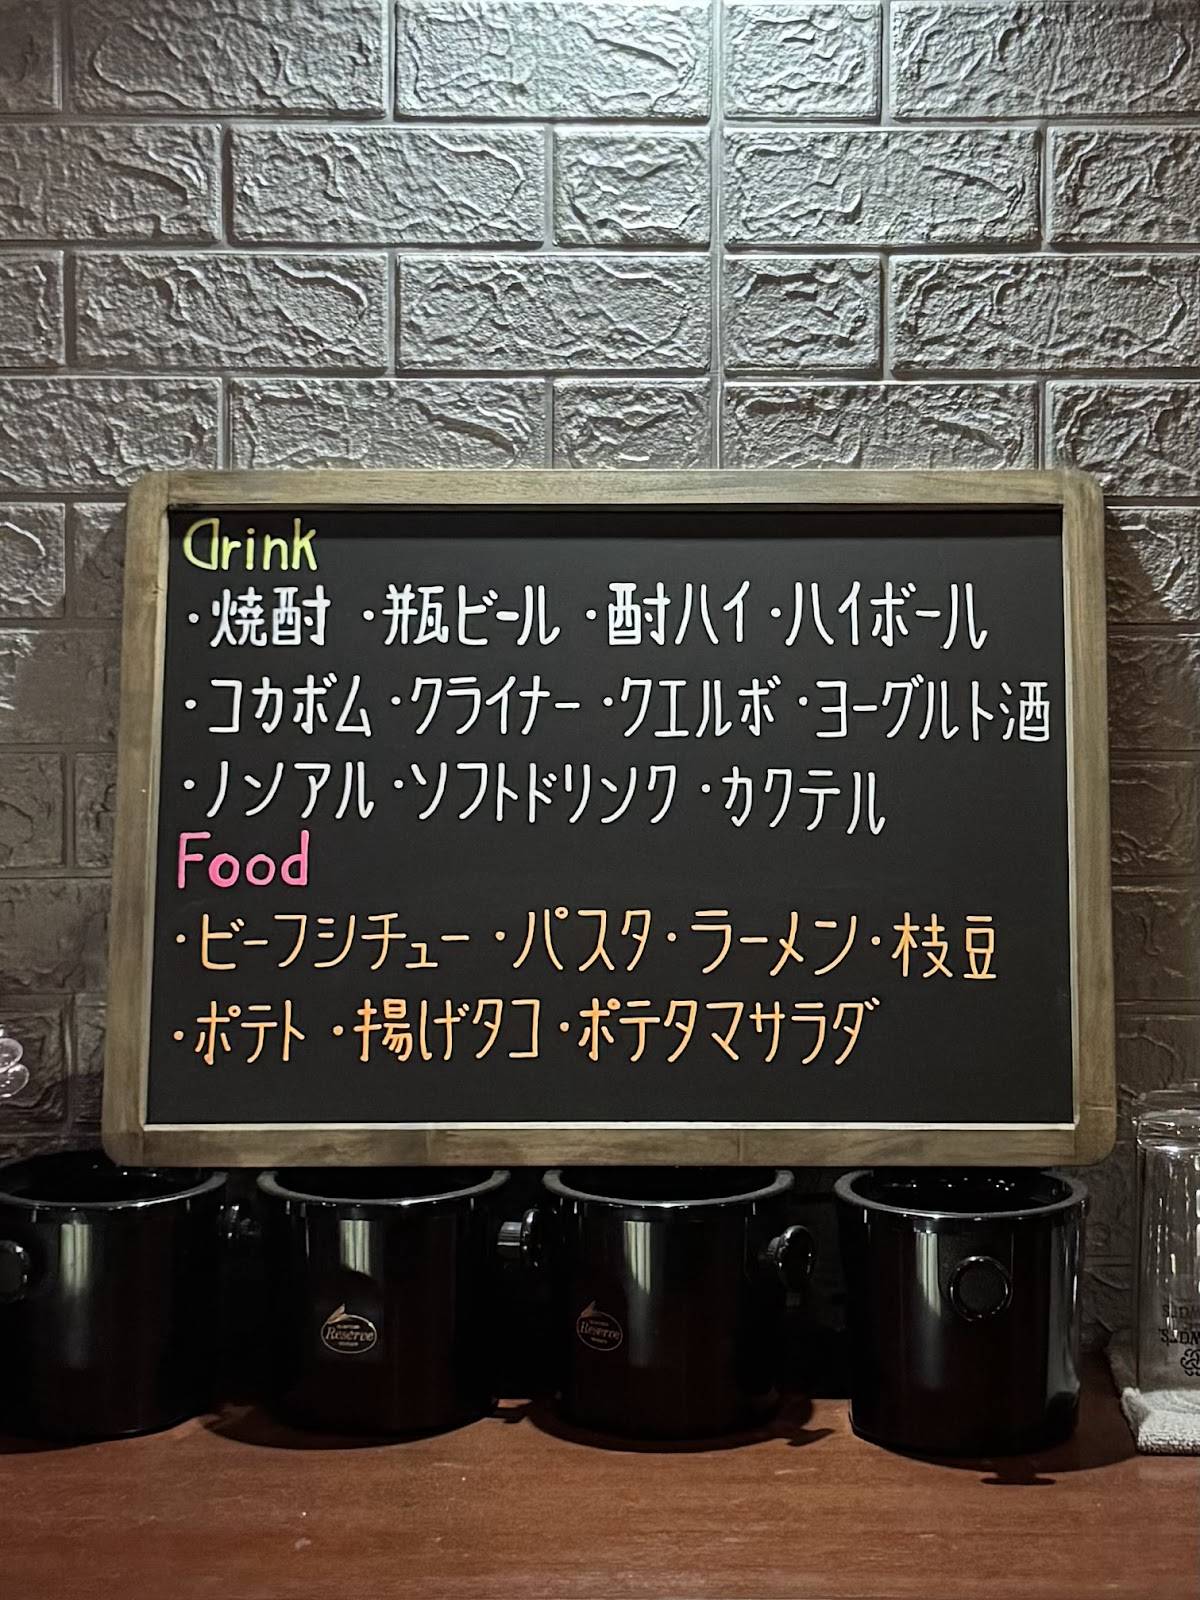 Drink
・焼酎 ・瓶ビール ・酎ハイ ・ハイボール
・コカボム ・クライナー ・クエルボ ・ヨーグルト酒
・ノンアル ・ソフトドリンク ・カクテル
Food
・ビーフシチュー ・パスタ ・ラーメン ・枝豆
・ポテト ・揚げタコ ・ポテタマサラダ
Reserve
Reserve